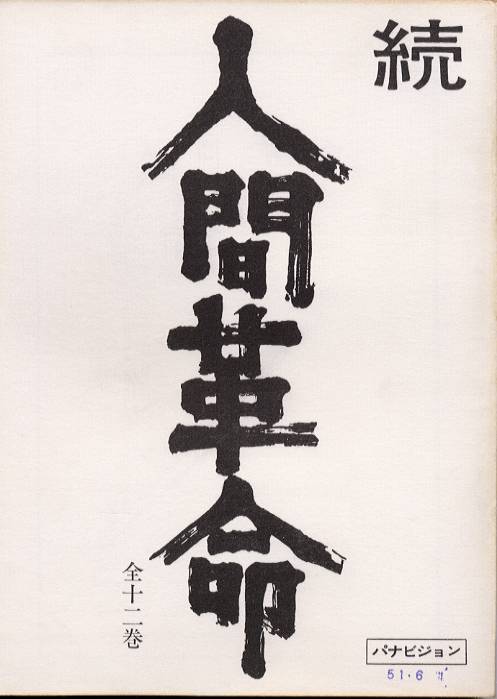 続
人間革命
全十二巻
パナビジョン
51.6